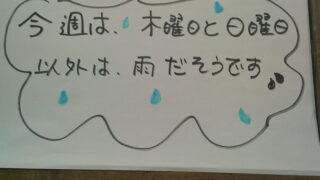 今週は、木曜日と日曜日
以外は、雨だそうです